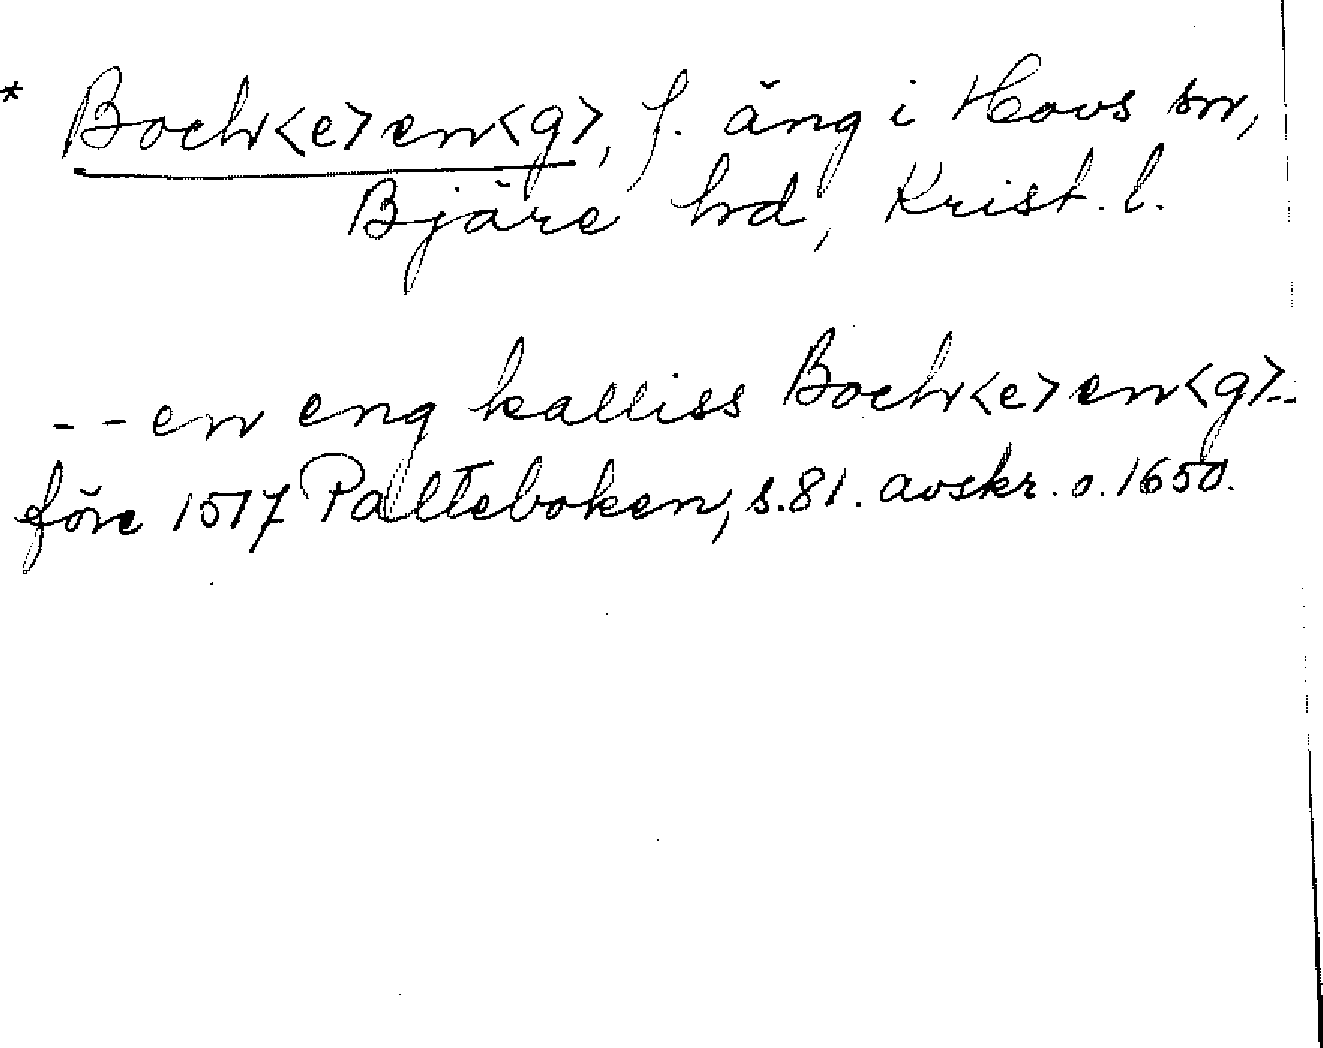 * Boch<e>en<g>, f. äng i Hovs sn,
Bjäre hd, Krist. l.
-- en eng kalliss Boch<e>en<g>--
före 1517 Palteboken, s. 81. avskr. o. 1650.